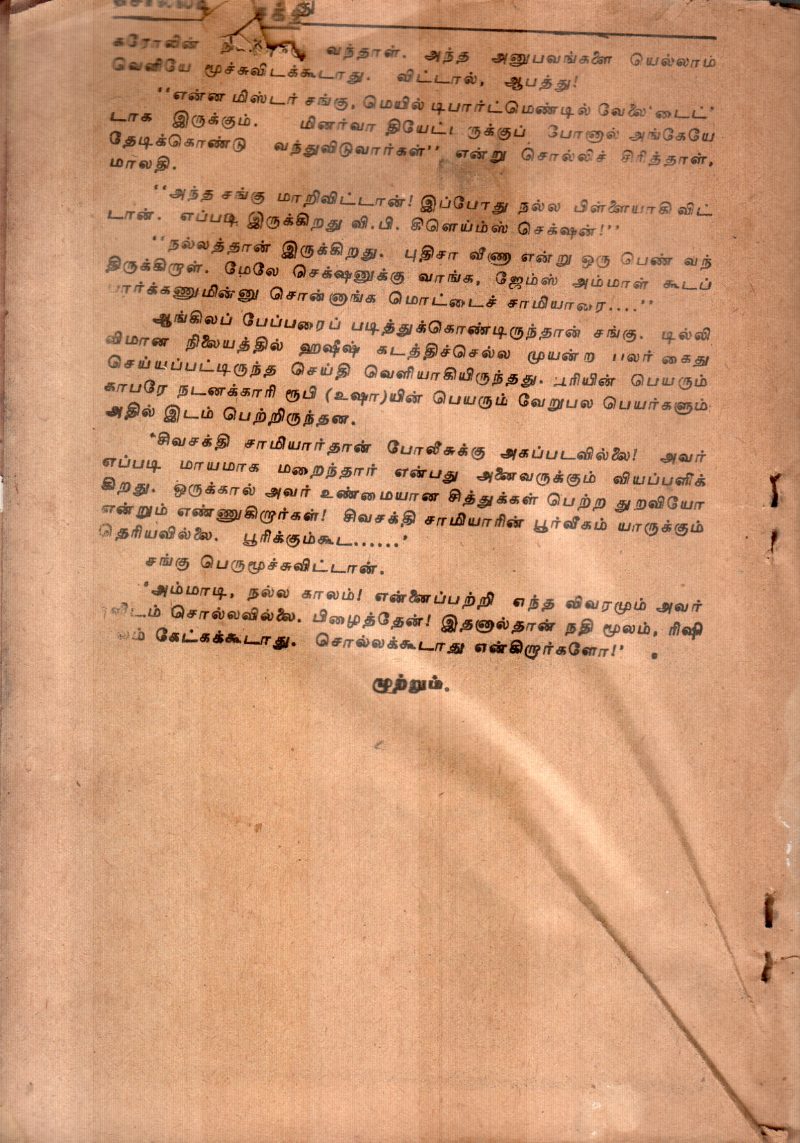 சக்து
கரோலின் வந்தாள். அந்த அனுபவங்களை யெல்லாம்
வெளியே மூச்சுவிடக்கூடாது. விட்டால், ஆபத்து!
‘‘என்ன மிஸ்டர் சங்கு, மெயில் டிபார்ட்மெண்டில் வேலை ‘டைட்’
டாக இருக்கும். மினர்வா தியேட்ட ருக்குப் போனால் அங்கேயே
தேடிக்கொண்டு வந்துவிடுவார்கள்’’ என்று சொல்லிச் சிரித்தாள்,
மாலதி.
‘‘அந்த சங்கு மாறிவிட்டான்! இப்போது நல்ல பிள்ளையாகி விட்
டான். எப்படி இருக்கிறது வி.பி. கிளெய்ம்ஸ் செக்‌ஷன்!’’
‘‘நல்லத்தான் இருக்கிறது. புதிசா வீணா என்று ஒரு பெண் வந்
திருக்கிறாள். மேலே செக்‌ஷனுக்கு வாங்க, ஜேம்ஸ் அம்மாள் கூடப்
பார்க்கணுமின்னு சொன்னாங்க மொட்டைச் சாமியாரை....’’
ஆங்கிலப் பேப்பரைப் படித்துக்கொண்டிருந்தான் சங்கு. டில்லி
விமான நிலையத்தில் ஹஷீஷ் கடத்திச்செல்ல முயன்ற பலர் கைது
செய்யப்பட்டிருந்த செய்தி வெளியாகியிருந்தது. பூரியின் பெயரும்
காபரே நடனக்காரி ரூபி (உஷா)யின் பெயரும் வேறுபல பெயர்களும்
அதில் இடம் பெற்றிருந்தன.
‘சிவசக்தி சாமியார்தான் போலீசுக்கு அகப்படவில்லை! அவர்
எப்படி மாயமாக மறைந்தார் என்பது அனைவருக்கும் வியப்பளிக்
கிறது. ஒருக்கால் அவர் உண்மையான சித்துக்கள் பெற்ற துறவியோ
என்றும் எண்ணுகிறார்கள்! சிவசக்தி சாமியாரின் பூர்வீகம் யாருக்கும்
தெரியவில்லை. பூரிக்கும்கூட......’
சங்கு பெருமூச்சுவிட்டான்.
‘அம்மாடி, நல்ல காலம்! என்னைப்பற்றி எந்த விவரமும் அவர்
சொல்லவில்லை. பிழைத்தேன்! இதனால்தான் நதி மூலம், ரிஷி
மூலம் கேட்கக்கூடாது. சொல்லக்கூடாது என்கிறார்களோ!’ .
முற்றும்.